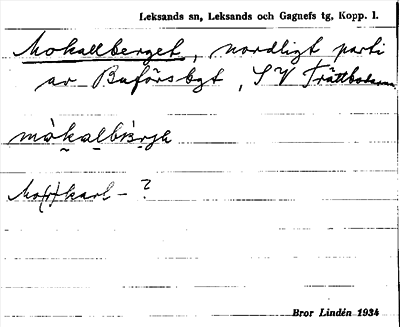 Leksands sn, Leksands och Gagnefs tg, Kopp. l.
Mokallberget, nordligt parti
av Buförsbgt, S V Trättbodarna
mòkalbærjə
Mo(r)karl- ?
Bror Lindén 1934